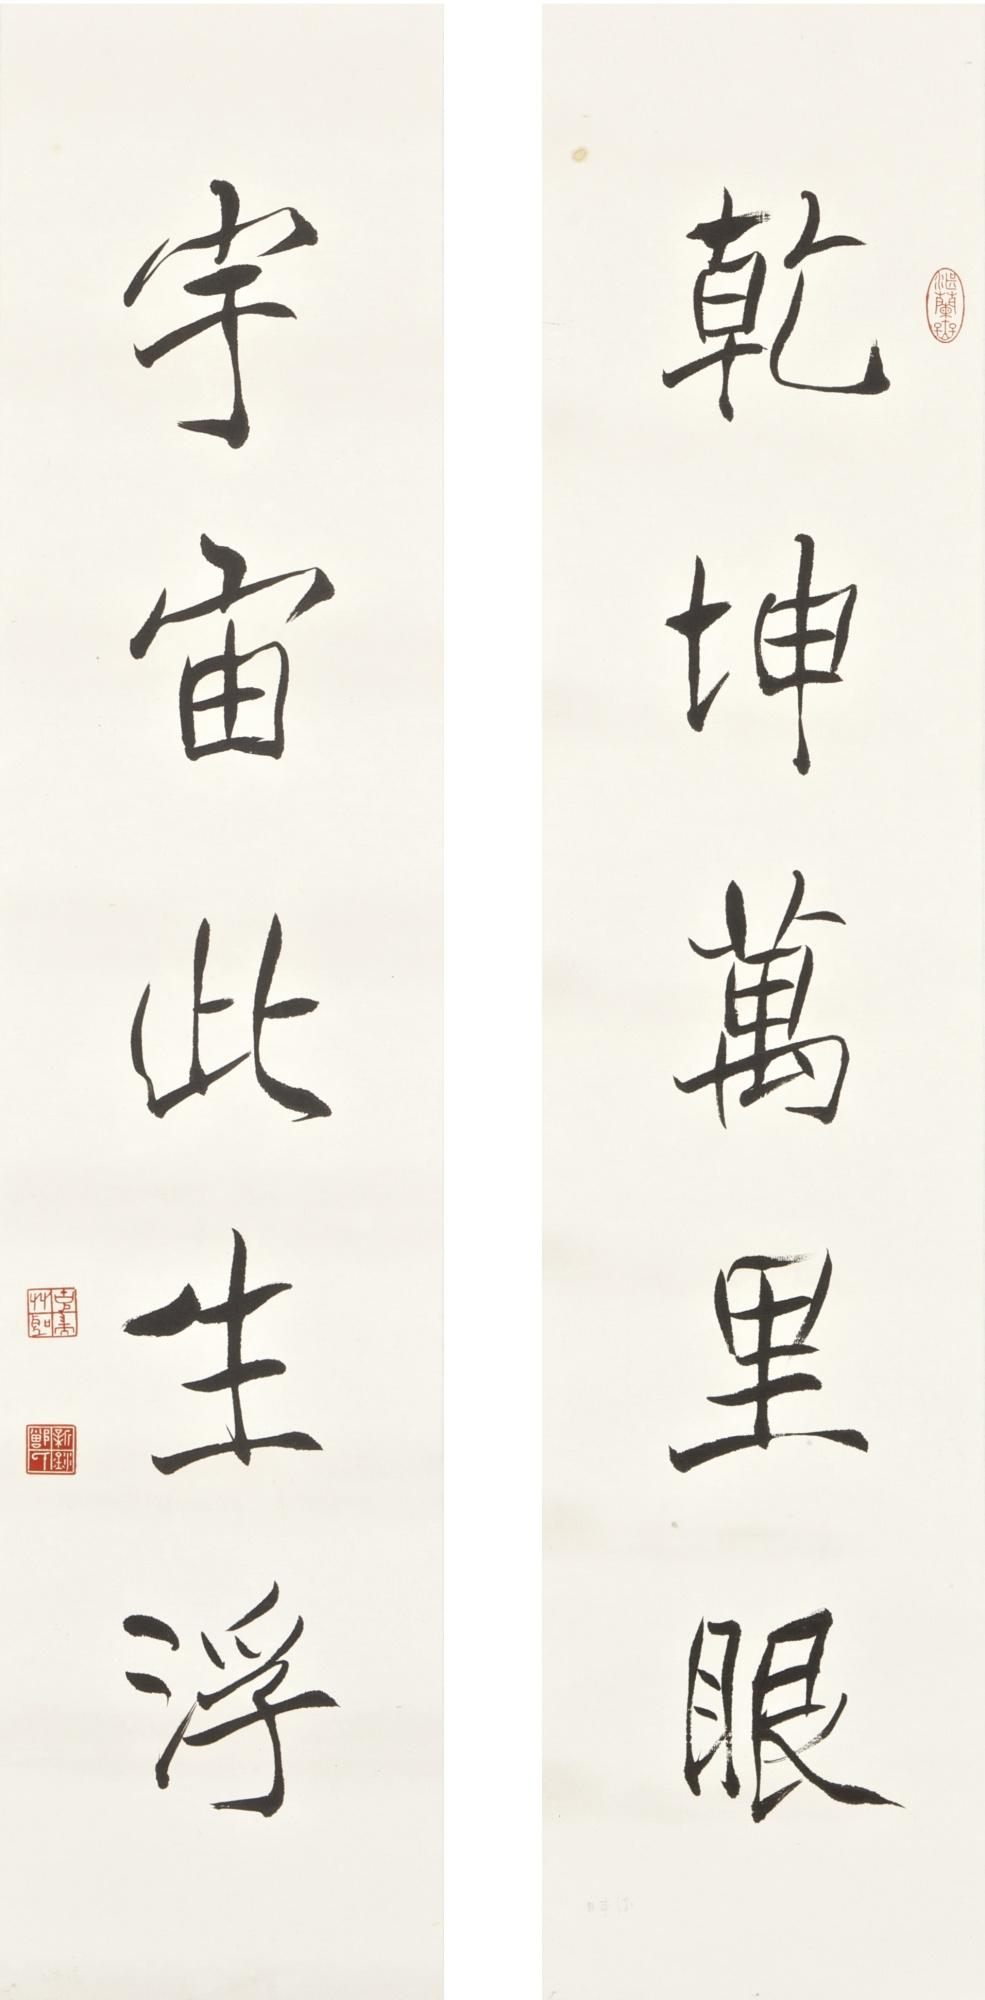 乾坤萬里眼
宇宙此生浮